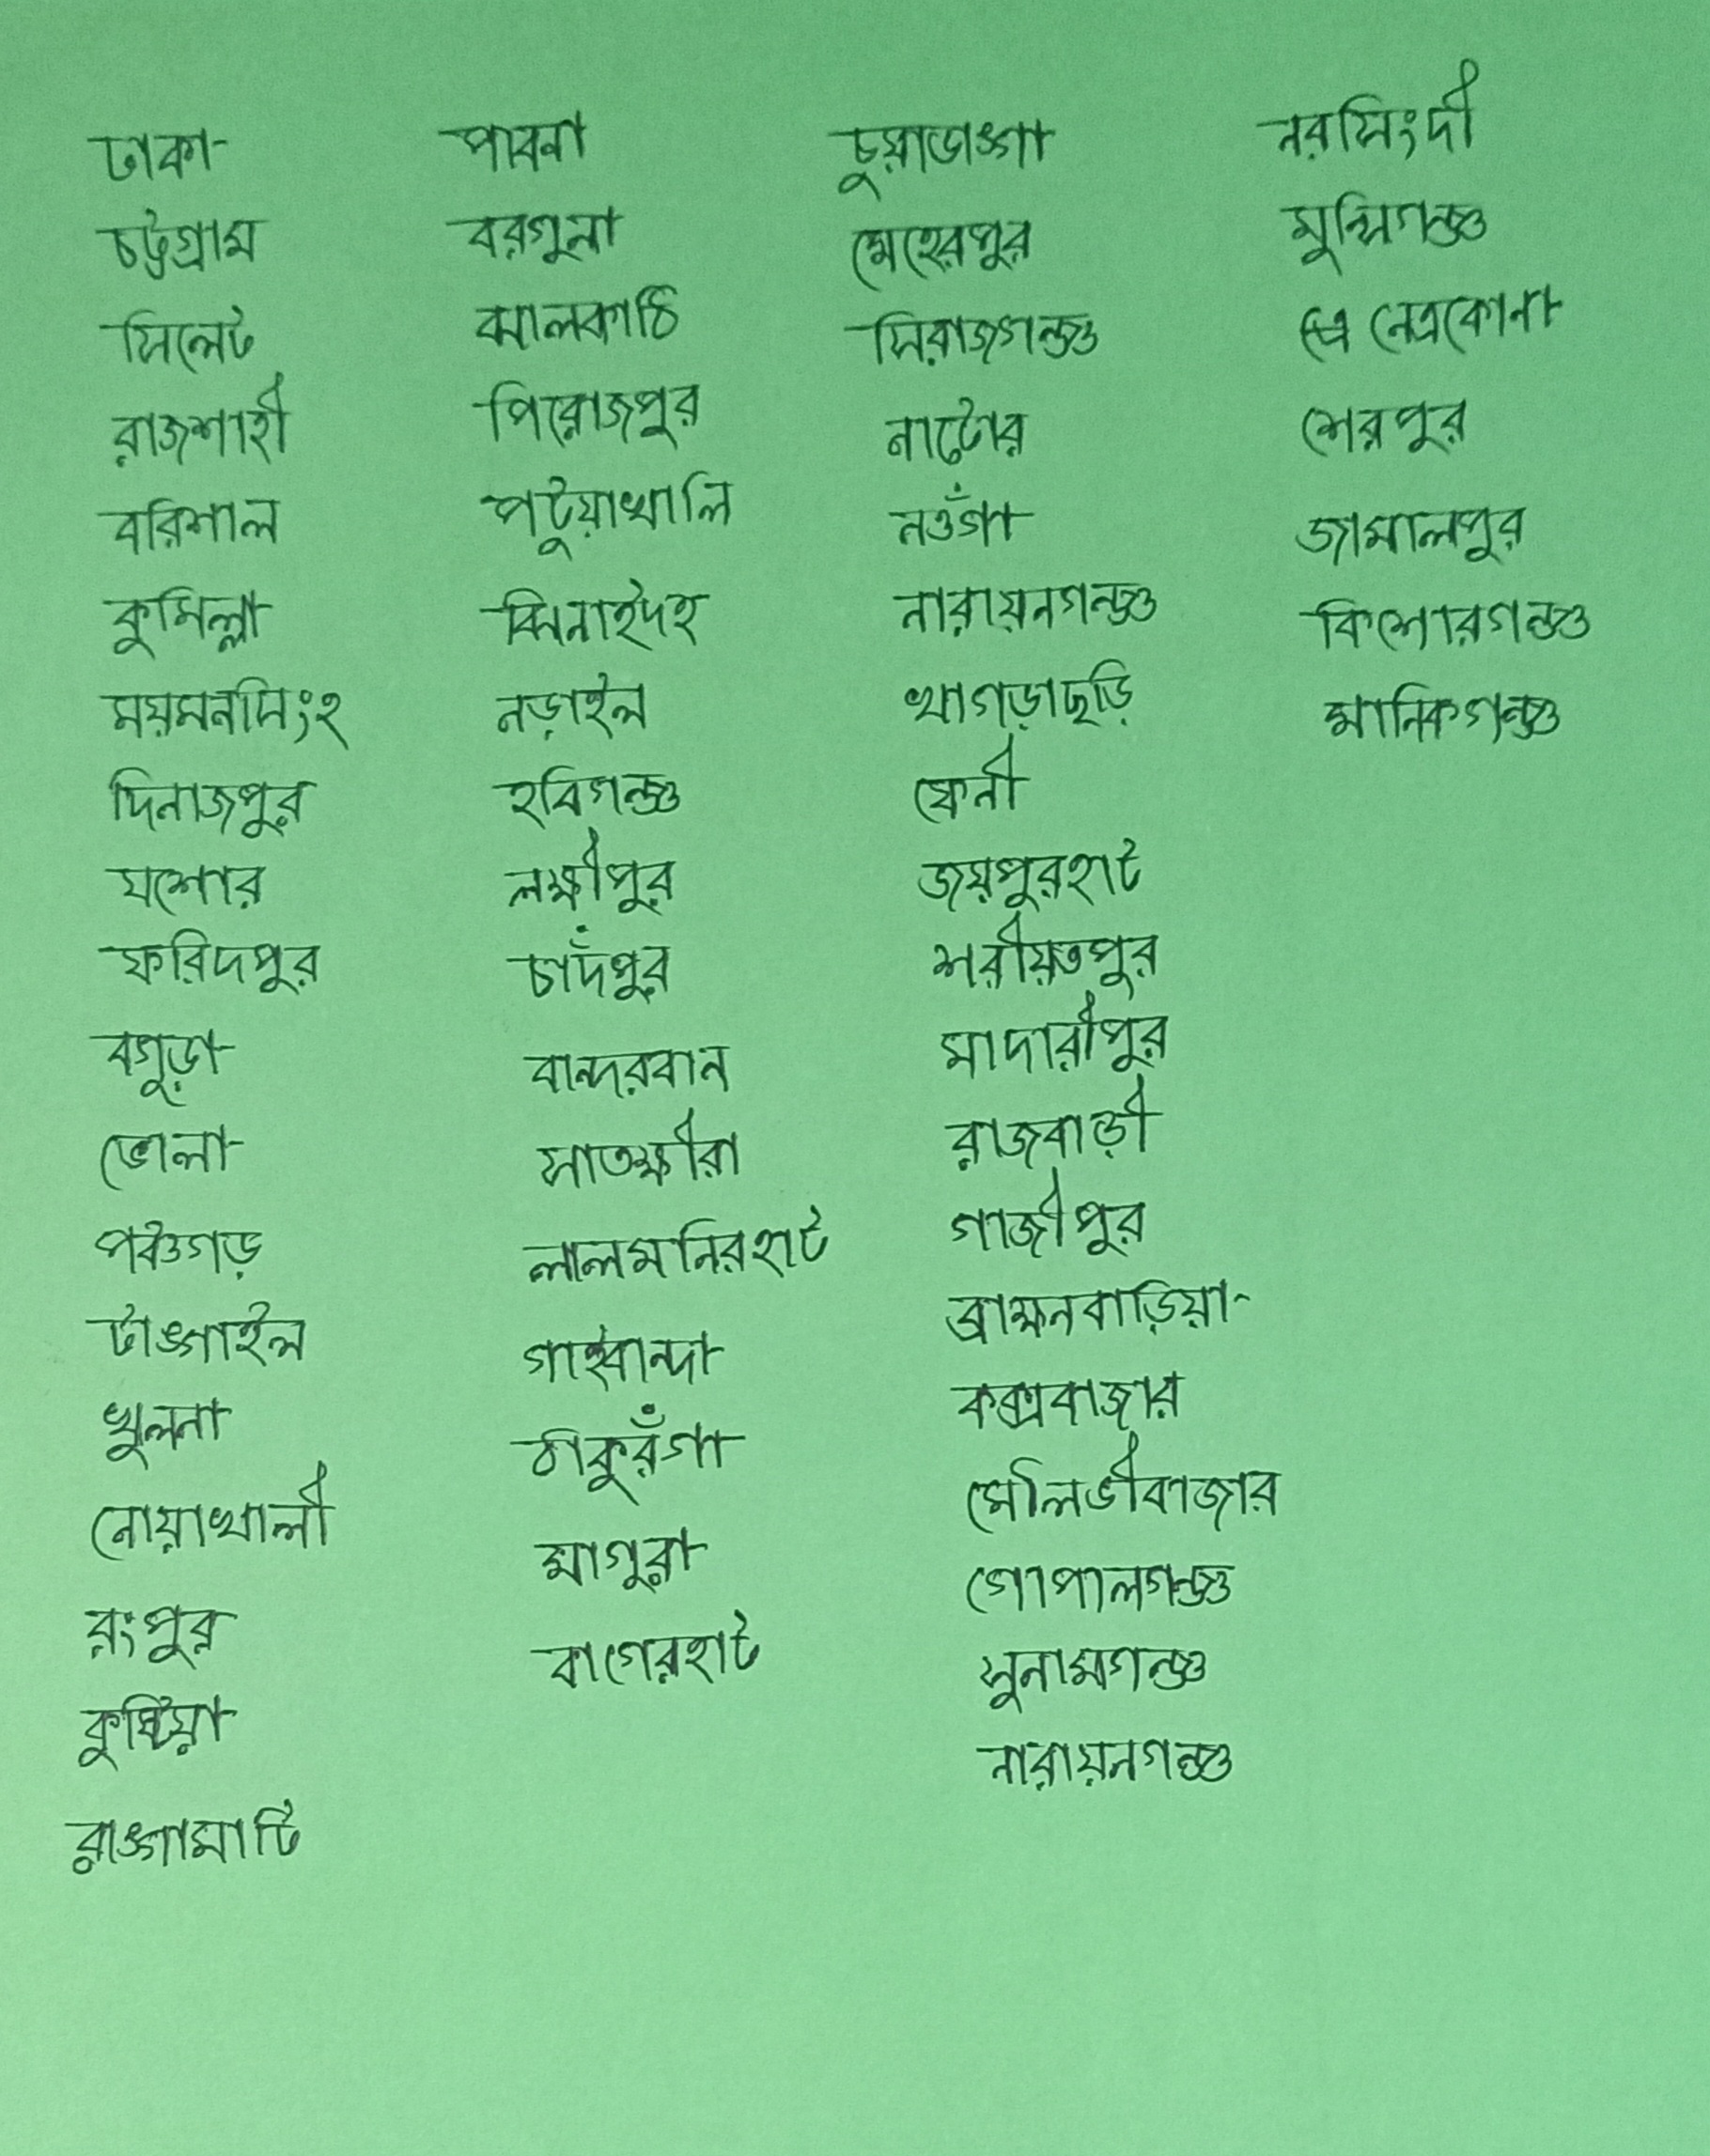 ঢাকা
চট্টগ্রাম
সিলেট
রাজশাহী
বরিশাল
কুমিল্লা
ময়মনসিংহ
দিনাজপুর
যশোর
ফরিদপুর
বগুড়া
ভোলা
পঞ্চগড়
টাঙ্গাইল
খুলনা
নোয়াখালী
রংপুর
কুষ্টিয়া
রাঙ্গামাটি
পাবনা
বরগুনা
ঝালকাঠি
পিরোজপুর
পটুয়াখালি
ঝিনাইদহ
নড়াইল
হবিগন্জ
লক্ষীপুর
চাঁদপুর
বান্দরবান
সাতক্ষীরা
লালমনিরহাট
গাইবান্দা
ঠাকুরঁগা
মাগুরা
বাগেরহাট
চুয়াডাঙ্গা
মেহেরপুর
সিরাজগন্জ
নাটোর
নওঁগা
নারায়নগন্জ
খাগড়াছড়ি
ফেনী
জয়পুরহাট
শরীয়তপুর
মাদারীপুর
রাজবাড়ী
গাজীপুর
ব্রাক্ষনবাড়িয়া
কক্সবাজার
মৌলভীবাজার
গোপালগন্জ
সুনামগন্জ
নারায়নগন্জ
নরসিংদী
মুন্সিগন্জ
নেত্রকোনা
শেরপুর
জামালপুর
কিশোরগন্জ
মানিকগন্জ